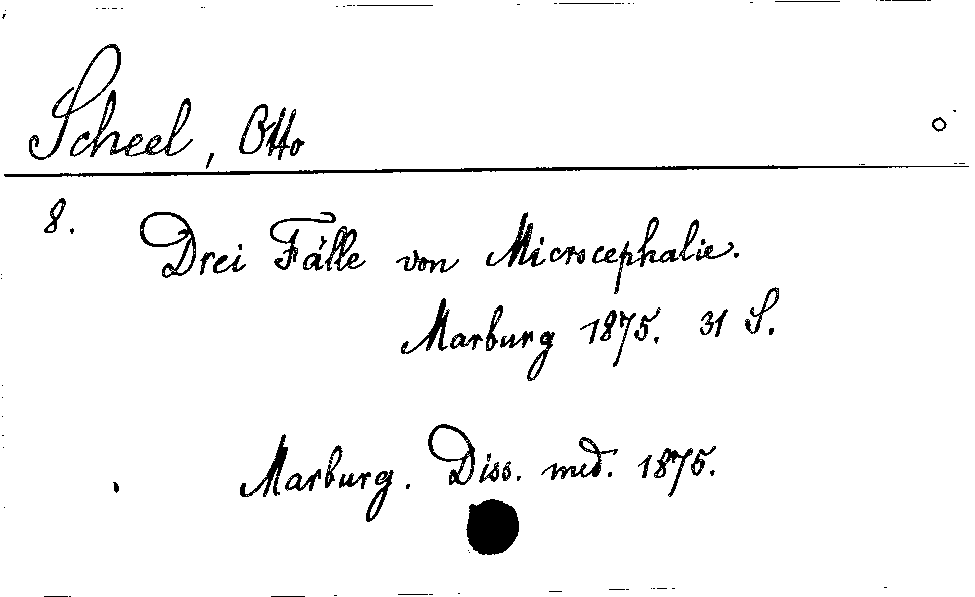 Scheel, Otto
8. Drei Fälle von Microcephalie.
Marburg 1875. 31 S.
Marburg. Diss. med. 1875.